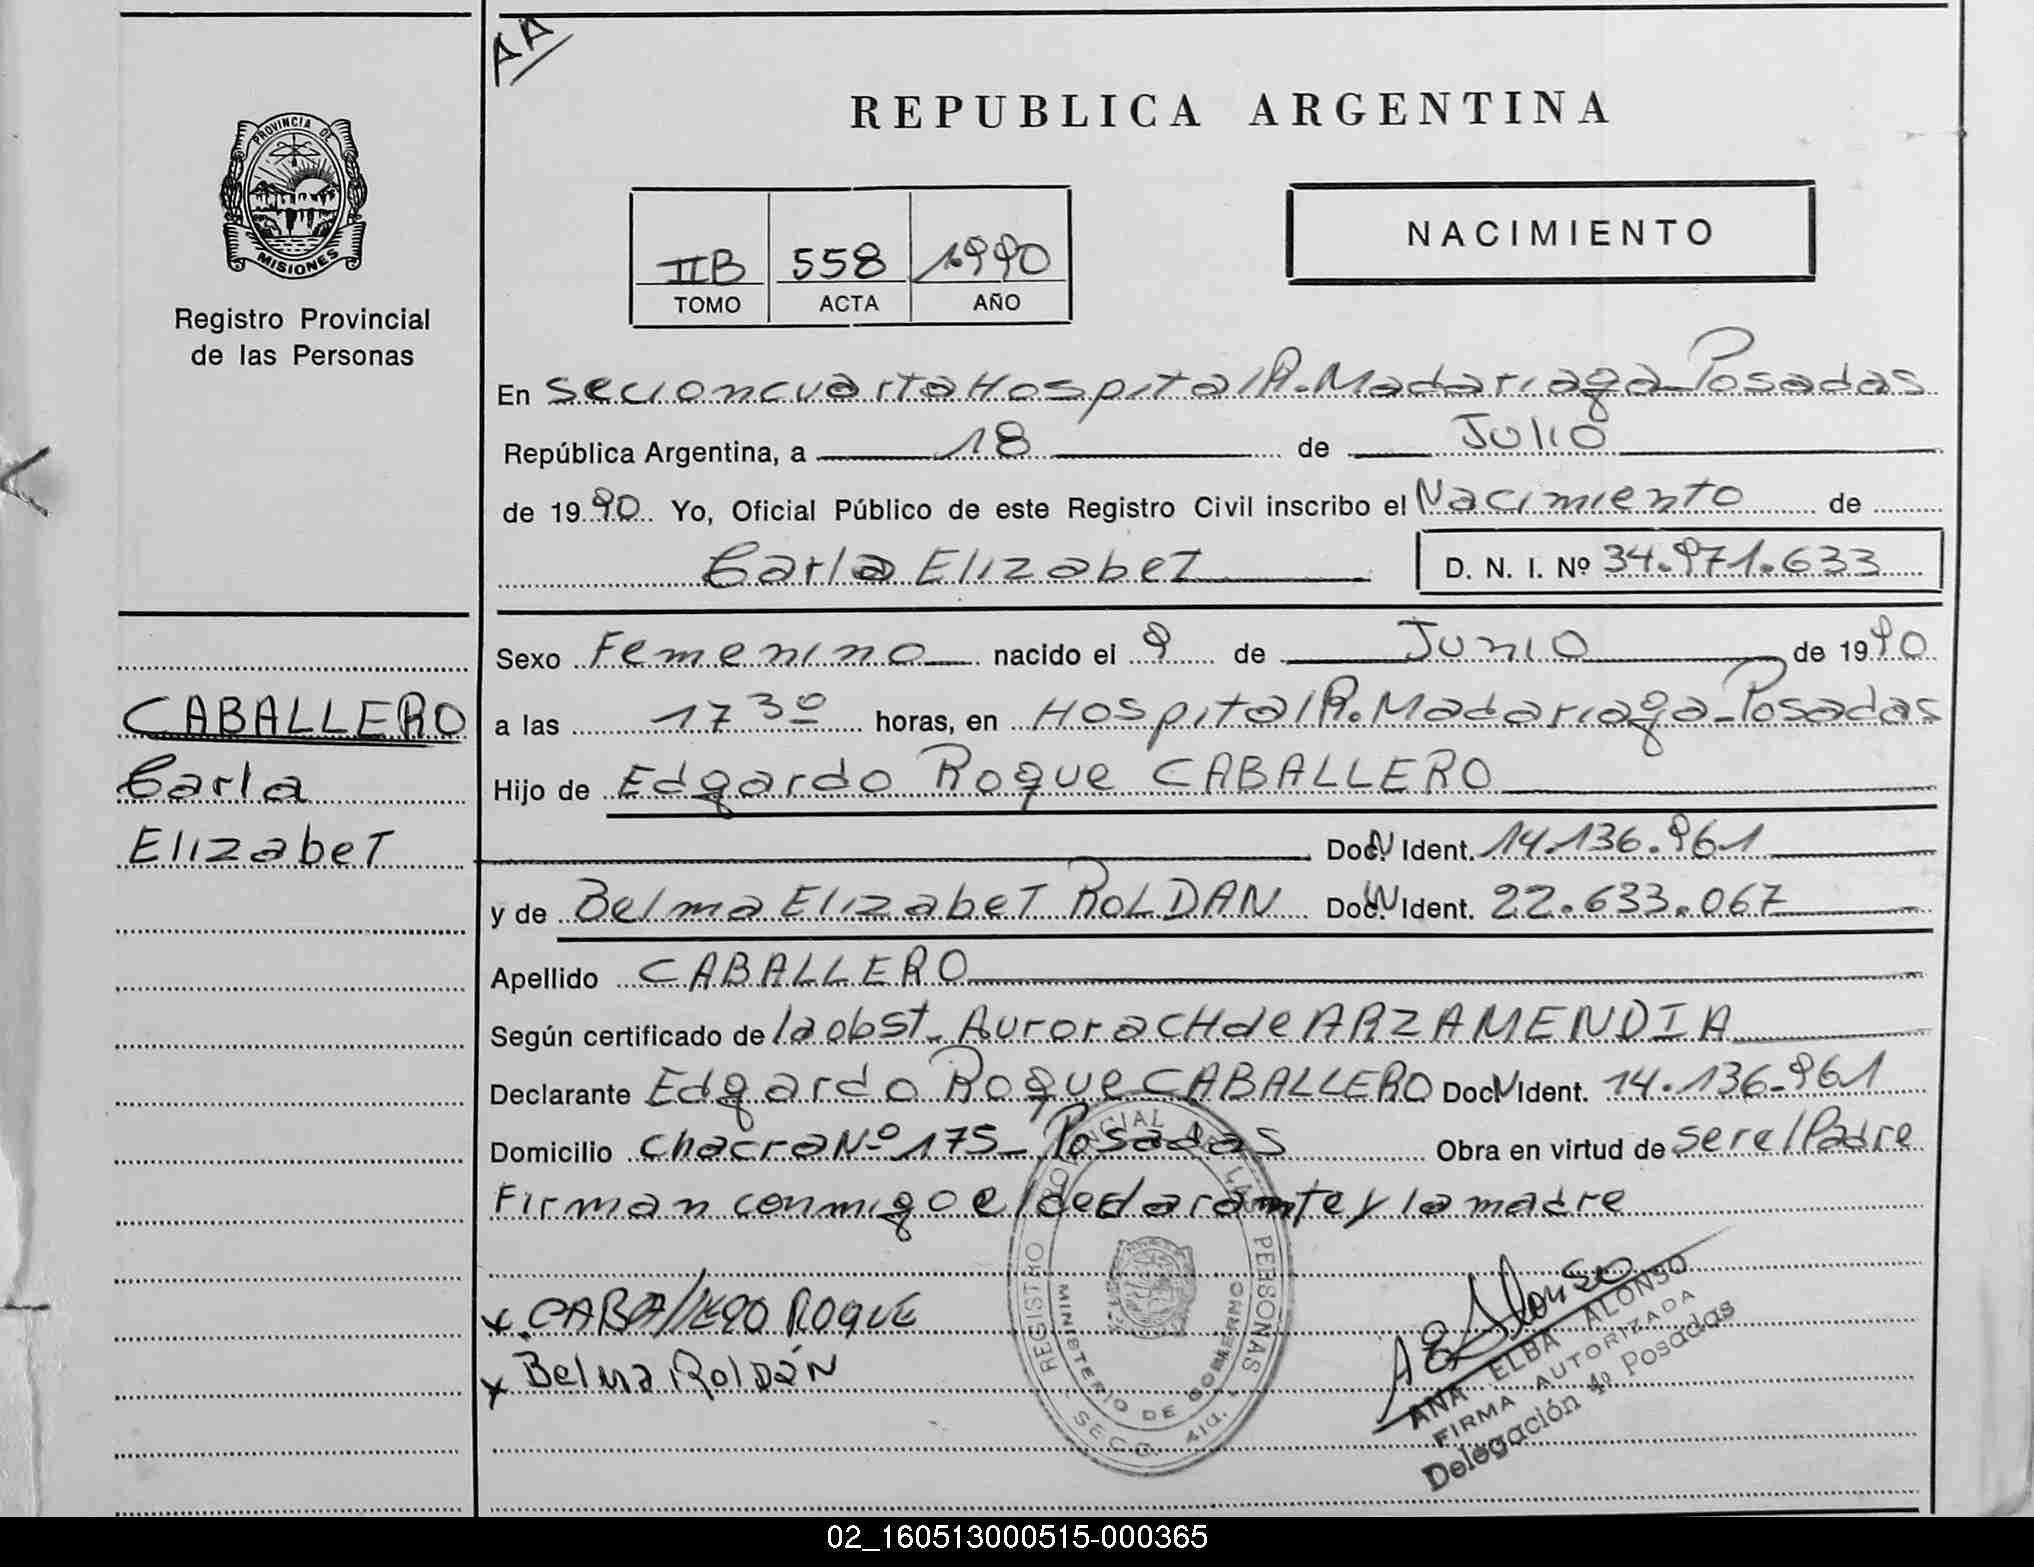 AA
PROVINCIA DE
MISIONES
Registro Provincial
de las Personas
REPUBLICA ARGENTINA
IIB 558 1.990
TOMO ACTA AÑO
NACIMIENTO
En SeccionCuarta Hospital R. Madariaga - Posadas
República Argentina, a 18 de Julio
de 19 90 Yo, Oficial Público de este Registro Civil inscribo el Nacimiento de
Carla Elizabet D. N. I. Nº 34.971.633
Sexo Femenino nacido el 9 de Junio de 19 90
CABALLERO
Carla
Elizabet
a las 17 30 horas, en Hospital R. Madariaga - Posadas
Hijo de Edgardo Roque CABALLERO
Doc. N Ident. 14.136.961
y de Belma Elizabet ROLDAN Doc. N Ident. 22.633.067
Apellido CABALLERO
Según certificado de la obst. Aurora CH de ARZAMENDIA
Declarante Edgardo Roque CABALLERO Doc N Ident. 14.136.961
Domicilio chacra Nº 175 - Posadas Obra en virtud de ser el Padre
Firman conmigo el declarante y la madre
x CABALLERO ROQUE
x Belma ROLDÁN
REGISTRO PROVINCIAL DE LAS PERSONAS
MINISTERIO DE GOBIERNO
SECC. 4ta.
AEAlonso
ANA ELBA ALONSO
FIRMA AUTORIZADA
Delegación 4º Posadas
02_160513000515-000365